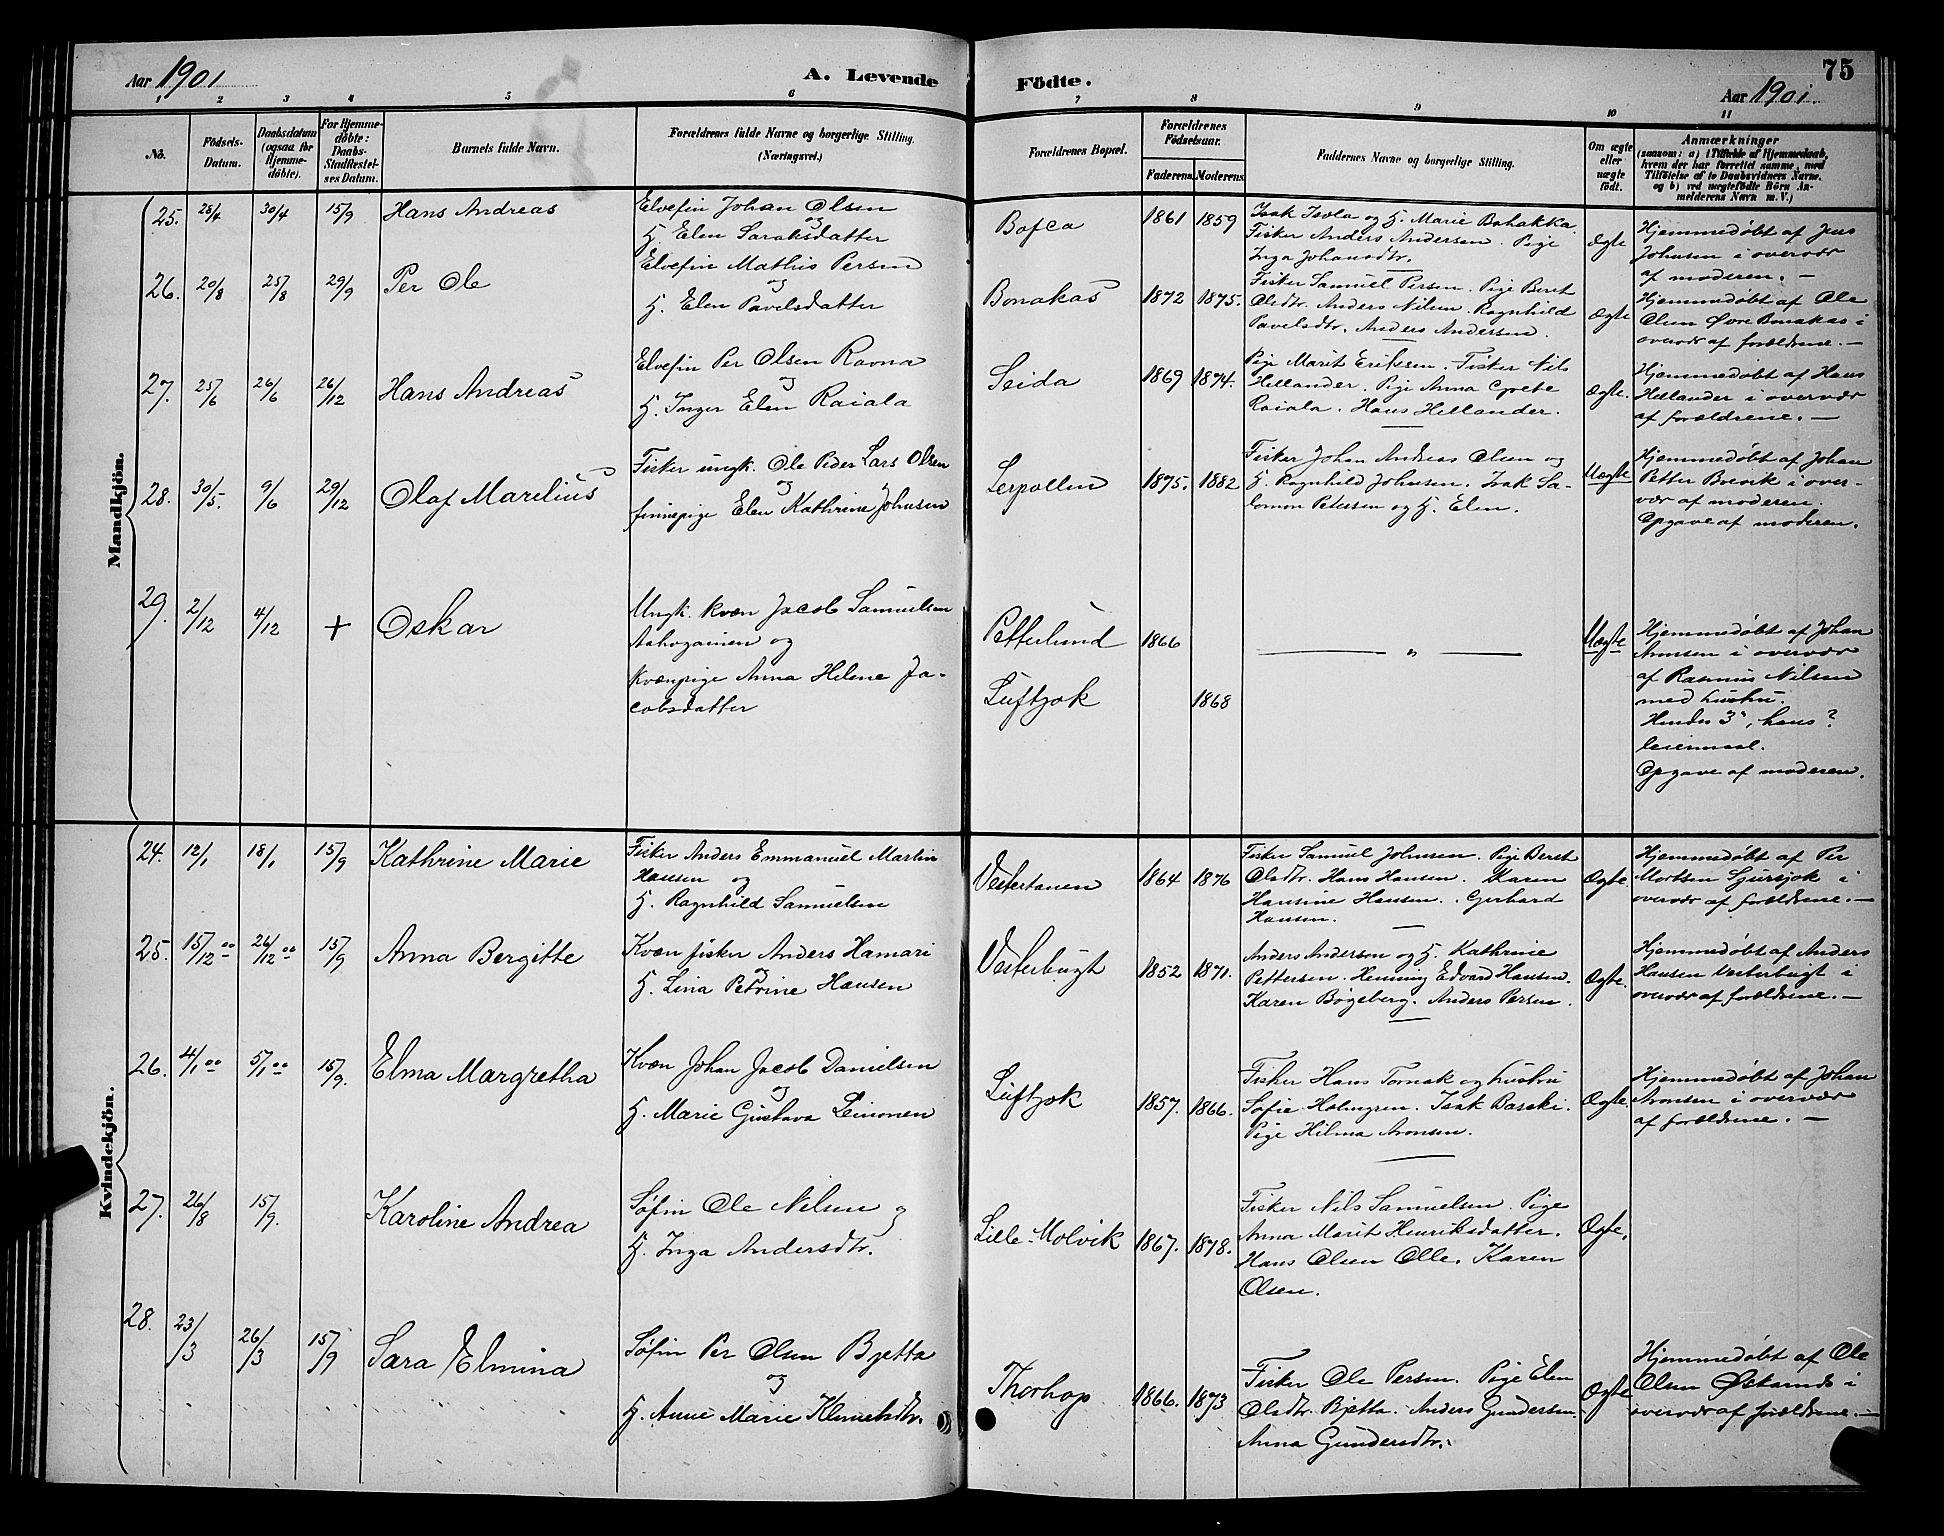 Aar 1901 A. Levende Födte. Aar 1901. 75
1 2 3 4 5 6 7 8 9 10 11
No.
Födsels-
Datum.
Daabsdatum
(ogsaa for
Hjemme-
döbte).
For Hjemme-
döbte:
Daabs-
Stadfæstel-
ses Datum.
Barnets fulde Navn.
Forældrenes fulde Navne og borgerlige Stilling.
(Næringsvei.)
Forældrenes Bopæl.
Forældrenes
Födselsaar.
Faderens. Moderens.
Faddernes Navne og borgerlige Stilling.
Om ægte
eller
uægte
födt.
Anmærkninger
(saasom: a) i Tilfælde af Hjemmedaab,
hvem der har forrettet samme, med
Tilföielse af to Daabsvidners Navne,
og b) ved uægtefödte Börn An-
melderens Navn m. V.)
Mandkjön.
25. 25/4 30/4 15/9 Hans Andreas
Elvefin Johan Olsen
og
H. Elen Saraksdatter
1861 1859
Isak Isola og H. Marie
Fisker Anders Andersen. Pige
Inga Johansdtr.
Ægte
Hjemmedøbt af Jens
Johnsen i overvær
af moderen. —
26. 20/8 25/8 29/9 Per Ole
Elvefin Mathis Persen
og
H. Elen Pavelsdatter
Bonakas 1872 1875.
Fisker Samuel Persen. Pige Beret
Olsdtr. Anders Nilsen. Ragnhild
Pavelsdtr. Anders Andersen.
Ægte
Hjemmedøbt af Ole
Olsen Øvre Bonakas i
overvær af forældrene. —
27. 25/6 26/6 26/12 Hans Andreas
Elvefin Per Olsen Ravna
og
H. Inger Elen Raiala
Seida 1869 1874.
Pige Marit Eriksen. Fisker Nils
Hellander. Pige Anna Grete
Raiala. Hans Hellander.
Ægte.
Hjemmedøbt af Hans
Hellander i overvær
af forældrene. —
28. 30/5. 9/6 29/12 Olaf Marelius
Fisker ungk. Ole Peder Lars Olsen
og
finnepige Elen Kathrine Johnsen
Lerpollen 1875. 1882
Fisker Johan Andreas Olsen og
H. Ragnhild Johnsen. Isak Sa-
lomon Petersen og H. Elen.
Uægte
Hjemmedøbt af Johan
Petter Brevik i over-
vær af moderen.
Opgave af moderen.
29. 2/12 4/12 + Oskar
Ungk. kvæn Jacob Samuelsen
og
kvænpige Anna Helene Ja-
cobsdatter
Petterlund 1866
Luftjok 1868
— „ —
Uægte
Hjemmedøbt af Johan
Aronsen i overvær
af Rasmus Nilsen
med hustru.
Hendes 3", hans ?
leiermaal.
Opgave af moderen.
Kvindekjön.
24. 12/1 18/1 15/9 Kathrine Marie
Fisker Anders Emmanuel Martin
Hansen og
H. Ragnhild Samuelsen
Vestertanen 1864 1876
Fisker Samuel Johnsen. Pige Beret
Olsdtr. Hans Hansen. Karen
Hansine Hansen. Gerhard
Hansen.
Ægte.
Hjemmedøbt af Per
Mortsen Sjursjok i
overvær af forældrene. —
25. 15/12 00 26/12 00 15/9 Anna Bergitte
Kvæn fisker Anders Hamari
og
H. Lina Petrine Hansen
Vesterbugt 1852 1871.
Anders Anderson og H. Kathrine
Pettersen. Henning Edvard Hansen.
Karen Bøgeberg. Anders Persen.
Ægte.
Hjemmedøbt af Anders
Hansen Vesterbugt i
overvær af forældrene. —
26. 4/1 00 5/1 00 15/9. Elma Margretha
Kvæn Johan Jacob Danielsen
og
H. Marie Gustava Leinonen
Luftjok 1857. 1866.
Fisker Hans Tornak og hustru
Sofie Holmgren. Isak Baseki.
Pige Hilma Aronsen.
Ægte.
Hjemmedøbt af Johan
Aronsen i overvær
af forældrene. —
27. 26/8 15/9. Karoline Andrea
Søfin Ole Nilsen og
H. Inga Andersdtr.
Lille-Molvik 1867. 1878.
Fisker Nils Samuelsen. Pige
Anna Marit Henriksdatter.
Hans Olsen Olle. Karen
Olsen.
Ægte.
28. 23/3 26/3 15/9 Sara Elmina
Søfin Per Olsen Bjetta
og
H. Anne Marie Klemetsdtr.
Thorhop 1866. 1873
Fisker Ole Persen. Pige Elen
Olsdtr. Bjetta. Anders Gundersen.
Anna Gundersdtr.
Ægte
Hjemmedøbt af Ole
Olsen i
overvær af forældrene. —